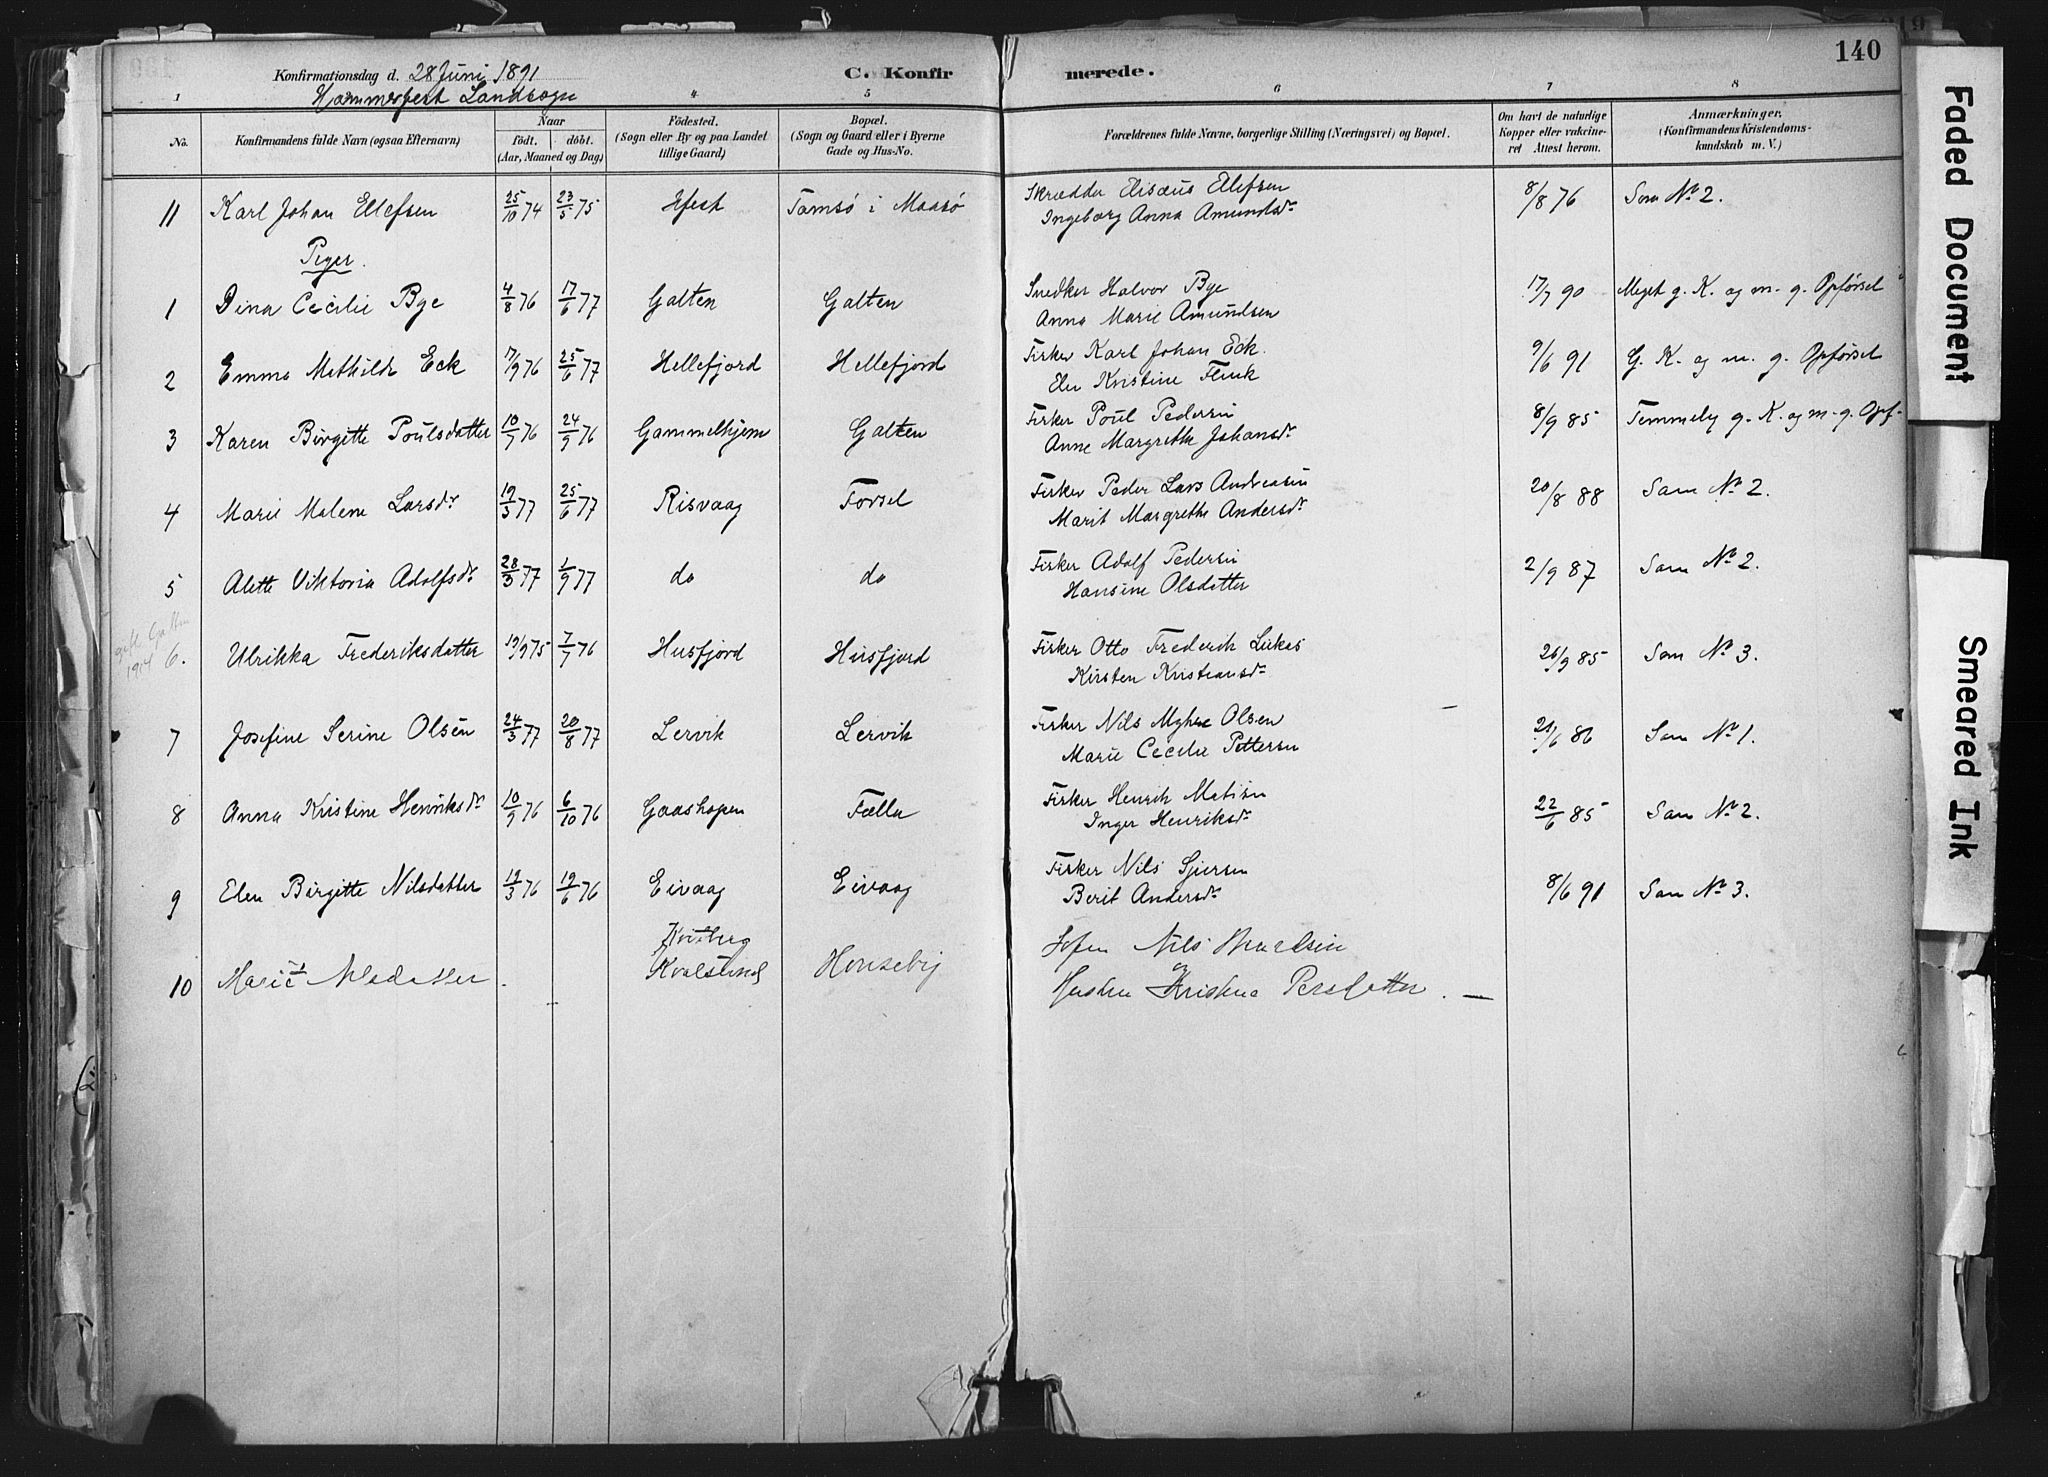 140
Konfirmationsdag d. 28 Juni 1891
C. Konfirmerede.
Hammerfest Landsogn
1 4 5 6 7 8
No.
Konfirmandens fulde Navn (ogsaa Efternavn)
Naar
födt. döbt.
(Aar, Maaned og Dag)
Födested.
(Sogn eller By og paa Landet
tillige Gaard)
Bopæl.
(Sogn og Gaard eller i Byerne
Gade og Hus-No.
Forældrenes fulde Navne, borgerlige Stilling (Næringsvei) og Bopæl.
Om havt de naturlige
Kopper eller vakcine-
ret Attest herom.
Anmærkninger.
(Konfirmandens Kristendoms-
kundskab m. V.)
11 Karl Johan Ellefsen 25/10 74 23/5 75 Hfest Tamsø i Maasø Skrædder Elisæus Ellefsen 8/8 76 Som No 2.
Ingeborg Anna Amundsdr
Piger.
1 Dina Cecilie Bye 4/8 76 17/6 77 Galten Galten Snedker Halvor Bye 17/7 90 Meget g. K. og m. g. Opførsel
Anna Marie Amundsen
2 Emma Mathilde Eck 17/9 76 25/6 77 Hellefjord Hellefjord Fisker Karl Johan Eck. 9/6 91 G. K. og m. g. Opførsel
Elen Kristine Flink
3 Karen Birgitte Poulsdatter 10/7 76 24/9 76 Gammelhjem Galten Fisker Poul Pedersen 8/9 85 Temmelig g. K. og m. g. Opf.
Anne Margrethe Johansdr
4 Marie Malene Larsdr 19/3 77 25/6 77 Risvaag Forsøl Fisker Peder Lars Andreasen 20/8 88 Som No 2.
Marit Margrethe Andersdr
5 Alette Viktoria Adolfsdr 28/3 77 1/9 77 do do Fisker Adolf Pedersen 2/9 87 Som No 2.
Hansine Olsdatter
1914 6. Ulrikka Frederiksdatter 19/9 75 7/7 76 Husfjord Husfjord Fisker Otto Frederik Lukas 26/9 85 Som No 3.
Kirsten Kristiansdr
7 Josefine Serine Olsen 24/3 77 20/8 77 Lervik Lervik Fisker Nils Myhre Olsen 21/6 86 Som No 1.
Marie Cecilie Pettersen
8 Anna Kristine Henriksdr 10/9 76 6/10 76 Gaashopen Fella Fisker Henrik Matisen 22/6 85 Som No 2.
Inger Henriksdr
9 Elen Birgitte Nilsdatter 19/3 76 19/6 76 Eivaag Eivaag Fisker Nils Sjursen 8/6 91 Som No 3.
Berit Andersdr
10 Marie Nilsdatter. Kvalsund Honseby Nils
og
Hustru Kristine Persdatter.
Faded Document
Smeared Ink